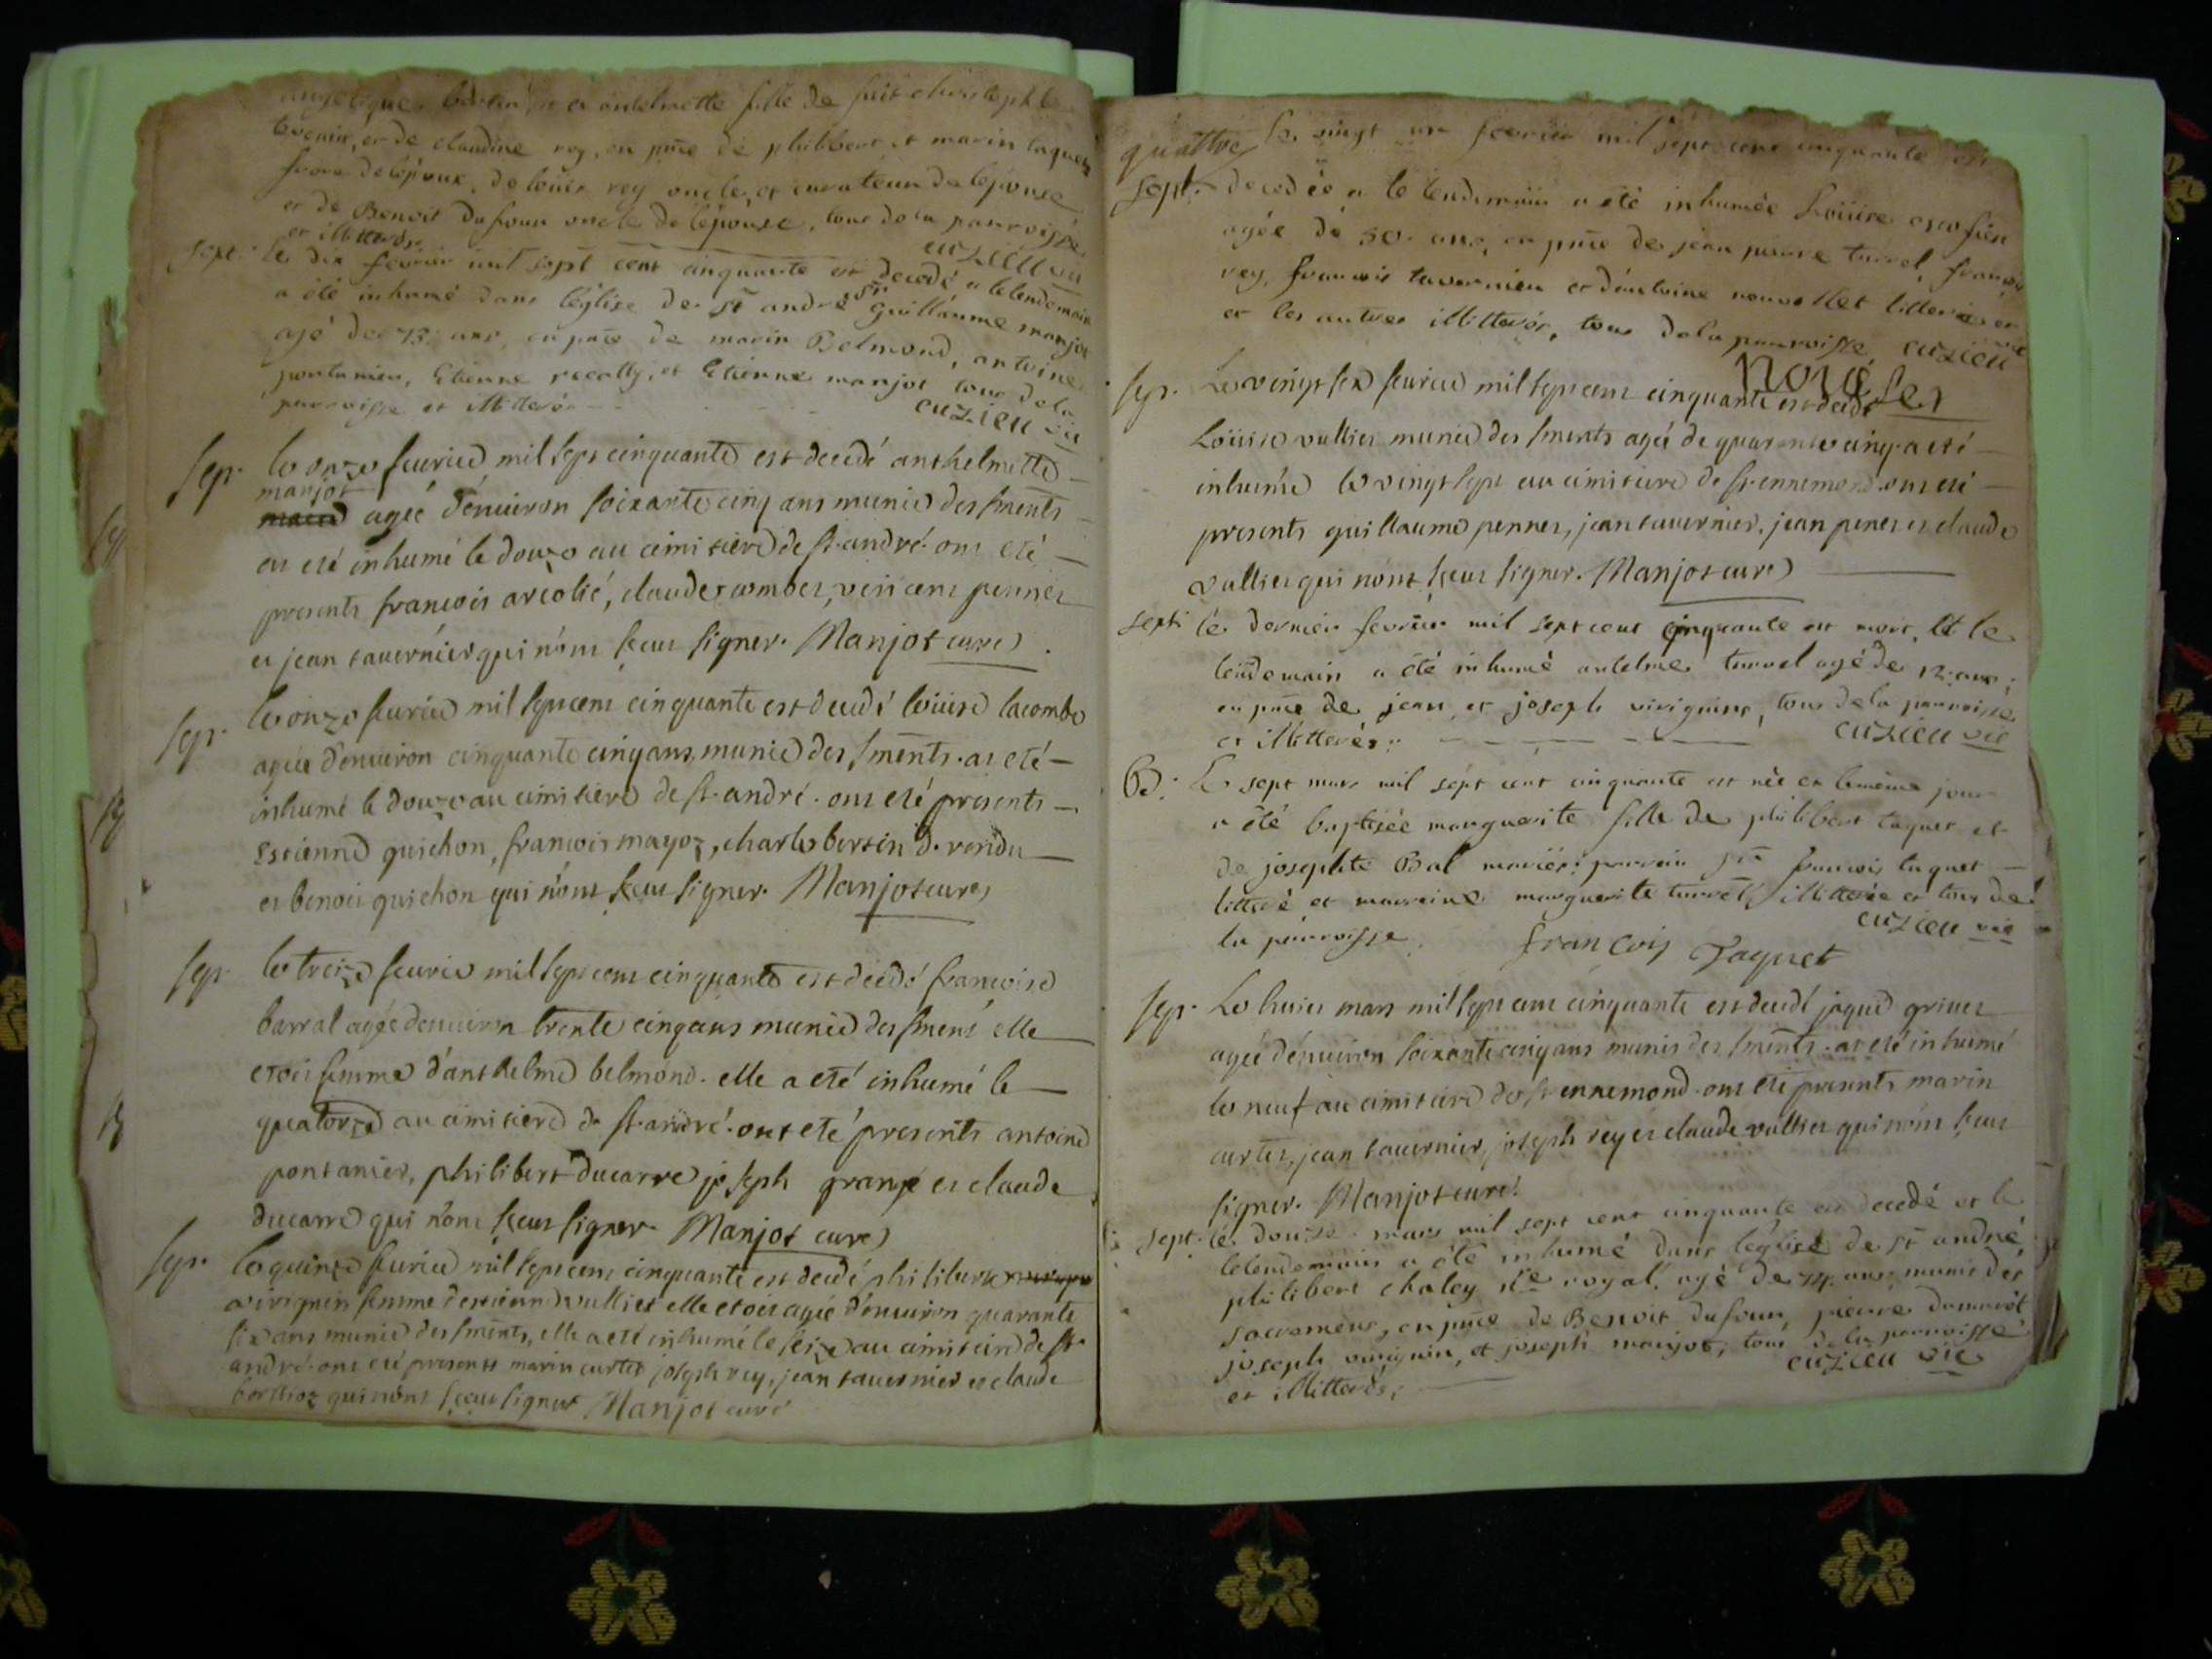 angelique, et antelmette fille de
et de claudine rey, en pñce de philibert et marin taquet
frere de lépoux, de loüis rey oncle, et curateur de lépouse
et de Benoit dufour oncle de lépouse, tous de la parroisse
et illitterés. cuzieu vic
sept. le dix fevrier mil sept cent cinquante est decedé et le lendemain
a été inhumé dans léglise de st andré sr guillaume manjot
agé de 73 ans, en pnce de marin Belmond, antoine
pontanier, Etienne recatty, et Etienne manjot tous de la
parroisse et illitterés cuzieu vic
sep. le onze feurier mil sept cinquante est decedé anthelmette
manjot
agée dénuiron soixante cinq ans munie des sments
at eté inhumé le douze au cimitiere de st. andré. ont eté
presents francois arcolié, claude combet, vincent pennet
et jean tauernier qui nont sceut signer. Manjot curé
sep. le onze feurier mil sept cent cinquante est decedé loüise lacombe
agée denuiron cinquante cinq ans, munie des sments. at eté
inhumé le douze au cimitiere de st. andré. ont eté presents
estienne guichon, francois mayoz, charle bertin d. veridu
et benoit guichon qui nont sceut signer. Manjot curé
sep. le treize feurier mil sept cent cinquante est decedé francoise
barral agée denuiron trente cinq ans munie des sment elle
etoit femme d'anthelme belmond. elle a eté inhumé le
quatorze au cimitiere de st. andré. ont eté presents antoine
pontanier, philibert ducarre joseph grange et claude
ducarre qui nont sceut signer. Manjot curé
sep. le quinze feurier mil sept cent cinquante est decedé philiberte
virignin femme destienne vullier elle etoit agée dénuiron quarante
six ans munie des sments, elle a eté inhumé le seize au cimitiere de st.
andré. ont eté presents marin curtet joseph rey, jean tauernier et claude
berthoz qui nont sceut signer Manjot curé
quattre
sept. le vingt un fevrier mil sept cent cinquante est
decedée et le lendemain a été inhumée Loüise escofier
agée de 50. ans, en pñce de jean pierre turrel, francois
rey, francois tavernier et dantoine nouvellet litteré et
et les autres illitterés, tous de la parroisse, cuzieu vic
sep. Le vingt six feurier mil sept cent cinquante est decedé
Loüise vullier munie des sments agée de quarente cinq. a eté
inhumé le vingt sept au cimitiere de st. ennemond. ont eté
presents guillaume pennet, jean tauernier, jean penet et claude
vullier qui nont sceut signer. Manjot curé
sept. le dernier fevrier mil sept cent cinquante est mort, et le
lendemain a été inhumé antelme turrel agé de 12. ans;
en pñce de jean, et joseph virignins, tous de la parroisse
et illitterés. cuzieu vic
B. Le sept mars mil sept cent cinquante est née et le même jour
a été baptisée marguerite fille de philibert taquet et
de josephte Bal mariés: parrein francois taquet
litteré et marreine marguerite turrel, illitterée et tous de
la parroisse. cuzieu vic
francois Taquet
sep. Le huict mars mil sept cent cinquante est decedé jaque griuet
agée dénuiron soixante cinq ans munis des sments. at eté inhumé
le neuf au cimitiere de st ennemond. ont eté presents marin
curtet, jean tauernier, joseph rey et claude vullier qui nont sceut
signer. Manjot curé.
sept. le douse mars mil sept cent cinquante est decedé et le
lelendemain a été inhumé dans léglise de st andré
philibert chaley nre royal, agé de 74 ans munis des
sacremens, en pñce de Benoit dufour, pierre dumarêt
joseph virignin, et joseph manjot, tous de la parroisse
et illitterés; cuzieu vic